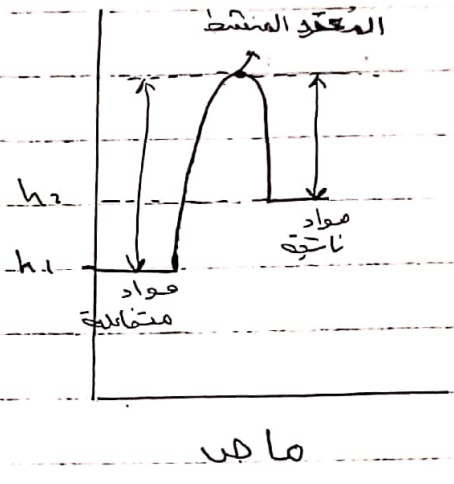 المُعقد المنشط
h2
مواد
ناتجة
h1
مواد
متفاعلة
ماص